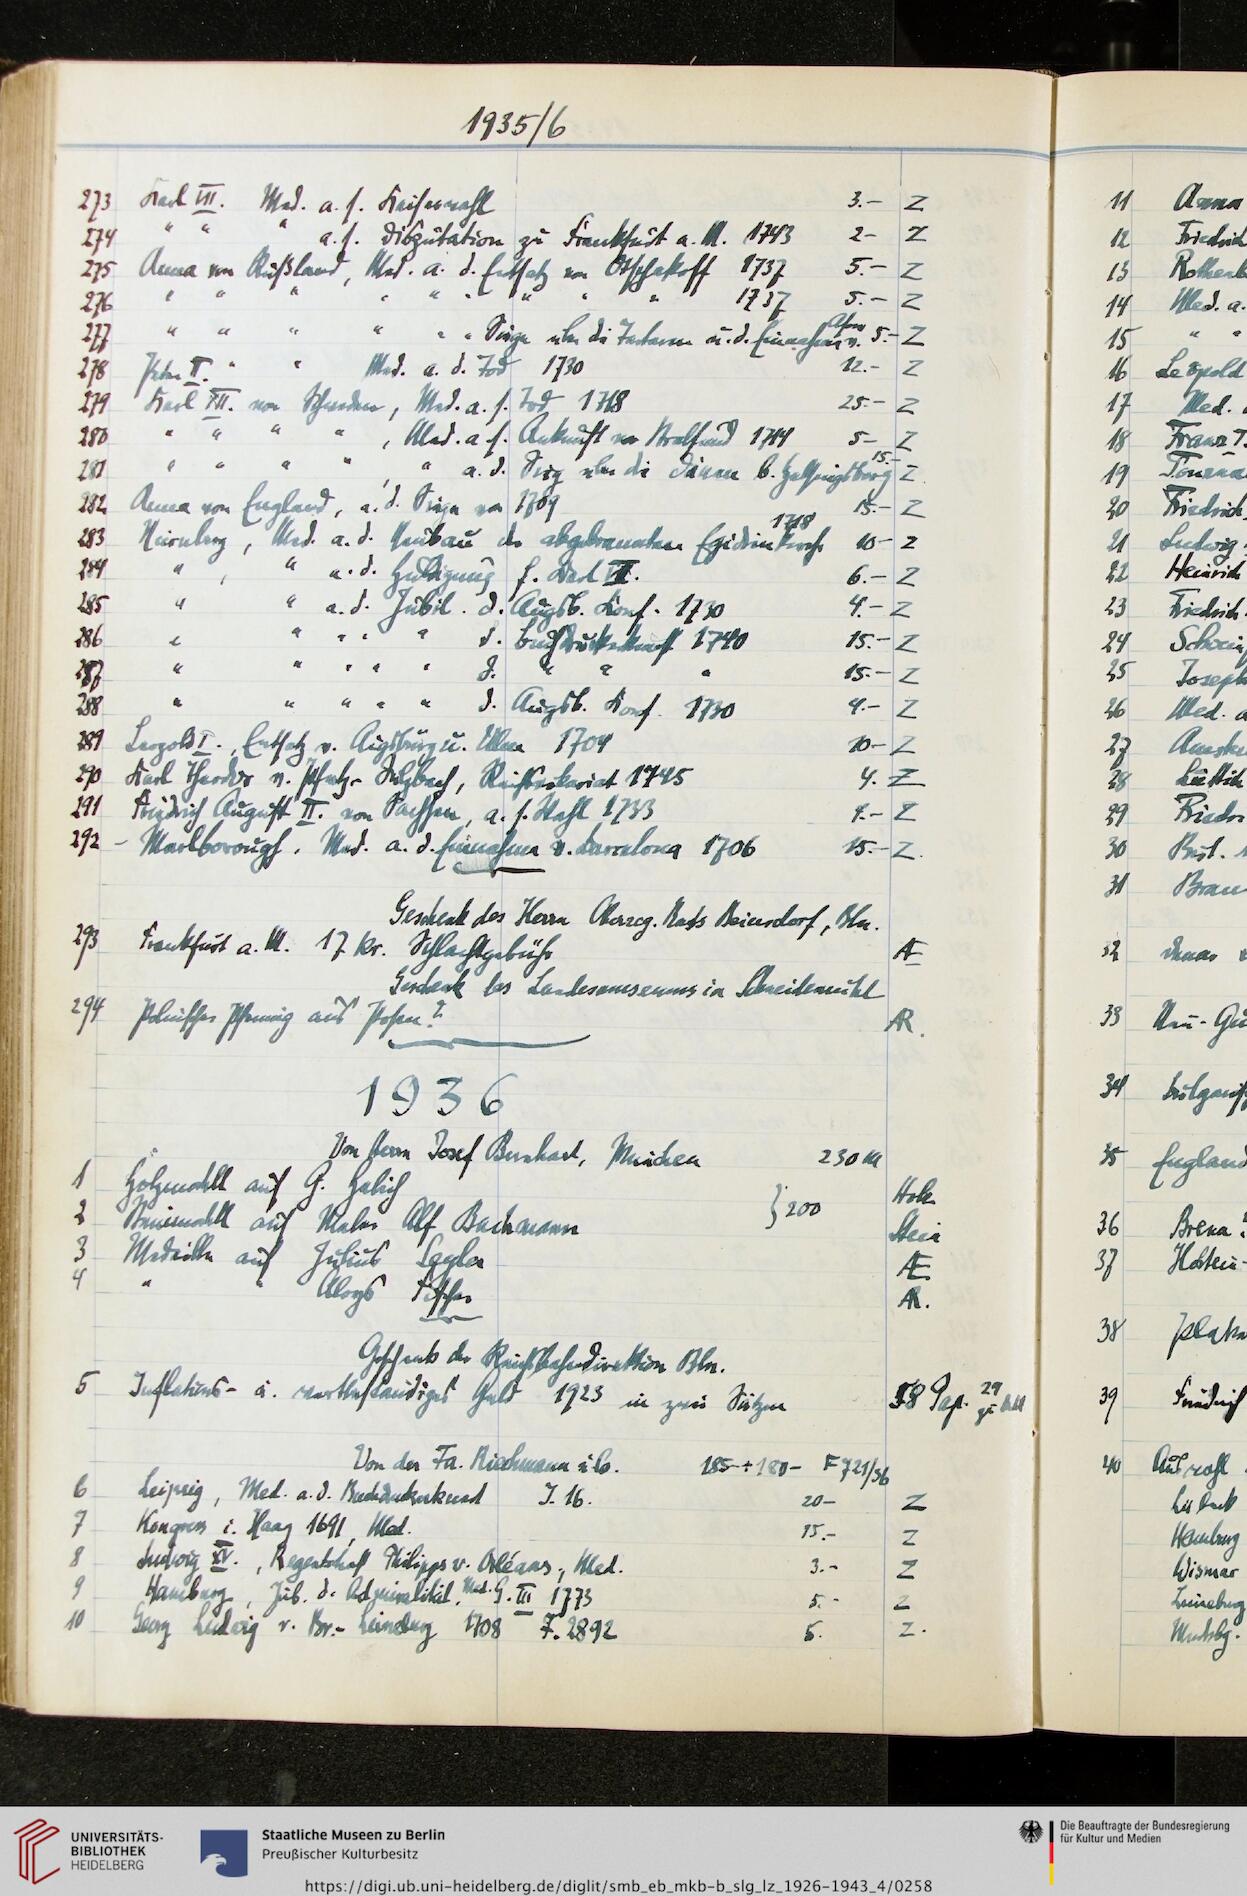 1935/6
273 Karl VII. Med. a. s. Kaiserwahl 3.- Z
274 " " " a. s. Disputation zu Frankfurt a. M. 1743 2- Z
275 Anna von Rußland, Med. a. d. Entsatz von Otschakoff 1737 5.- Z
276 " " " " " " " " " 1737 5.- Z
277 " " " " " " Siege über die Tartaren u. d. Einnahme v. Asow 5.- Z
278 Peter II. " " Med. a. d. Tod 1730 12.- Z
279 Karl XII. von Schweden, Med. a. s. Tod 1718 25.- Z
280 " " " " , Med. a. s. Ankunft vor Stralsund 1714 5- Z
281 " " " " " a. d. Sieg über die Dänen b. Helsingborg 15.- Z
282 Anna von England, a. d. Siege von 1709 15.- Z
283 Nürnberg, Med. a. d. Neubau der abgebrannten Egidienkirche 1718 10- Z
284 " , " a. d. Huldigung f. Karl VII. 6.- Z
285 " " a. d. Jubil. d. Augsb. Konf. 1730 4.- Z
286 " " " " " d. Buchdruckerkunst 1740 15.- Z
287 " " " " " d. " " " 15.- Z
288 " " " " " d. Augsb. Konf. 1730 4.- Z
289 Leopold I., Entsatz v. Augsburg u. Ulm 1704 10- Z
290 Karl Theodor v. Pfalz-Sulzbach, Reichsvikariat 1745 4. Z
291 Friedrich August II. von Sachsen, a. s. Wahl 1733 4.- Z
292 - Marlborough. Med. a. d. Einnahme v. Barcelona 1706 15.- Z.
Geschenk des Herrn Oberreg. Rats Beiersdorf, Bln.
293 Frankfurt a. M. 17 Kr. Schlachtgebühr Æ
Geschenk des Landesmuseums in Schneidemühl
294 Polnischer Pfennig aus Posen? AR.
1936
Von Herrn Josef Bernhart, München 230 M
1 Holzmodell auf G. Habich } 200 Holz
2 Steinmodell auf Maler Alf. Bachmann Stein
3 Medaille auf Julius Seyler Æ
4 " " Aloys Fischer AR.
Geschenk der Reichsbahndirektion Bln.
5 Inflations- u. wertbeständiges Geld 1923 in zwei Sätzen 58 Pap. 29
Von der Fa. Riechmann u. Co. 185 ÷ 180- F 721/36
6 Leipzig, Med. a. d. Buchdruckerkunst J. 16. 20- Z
7 Kongress i. Haag 1691, Med. 15.- Z
8 Ludwig XV., Regentschaft Philipps v. Orléans, Med. 3.- Z
9 Hamburg, Jub. d. Admiralität, Med. G. III 1773 5.- Z
10 Georg Ludwig v. Br.-Lüneburg 1708 F. 2892 5. Z.
11 Anna
12 Friedrich
13
14 Med. a.
15 " "
16 Leopold
17 Med.
18 Franz I.
19
20 Friedrich
21 Ludwig
22 Heinrich
23 Friedrich
24
25 Joseph
26 Med. a
27
28 Lüttich
29
30
31
32
33 Neu-Gu
34
35 England
36 Brena
37
38
39 Friedrich
40 Auswahl
Lübeck
Hamburg
Wismar
Lüneburg
UNIVERSITÄTS-
BIBLIOTHEK
HEIDELBERG
Staatliche Museen zu Berlin
Preußischer Kulturbesitz
Die Beauftragte der Bundesregierung
für Kultur und Medien
https://digi.ub.uni-heidelberg.de/diglit/smb_eb_mkb-b_slg_lz_1926-1943_4/0258